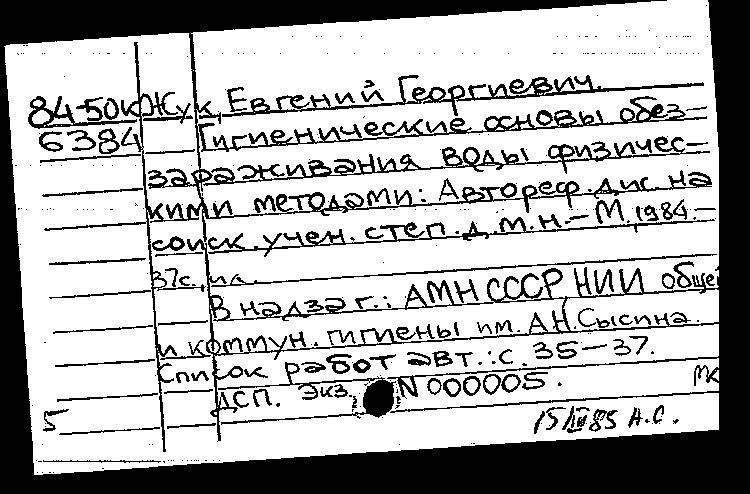 84-50к Жук, Евгений Георгиевич.
6384 Гигиенические основы обез-
зараживания воды физичес-
кими методами: Автореф. дис. на
соиск. учен. степ. д. м. н. – М., 1984. –
37с., ил.
В надзаг.: АМН СССР, НИИ общей
и коммун. гигиены им. А.Н. Сысина.
Список работ авт.: с. 35–37.
ДСП. Экз. N 000005.
МК
5
15/III 85 А.С.